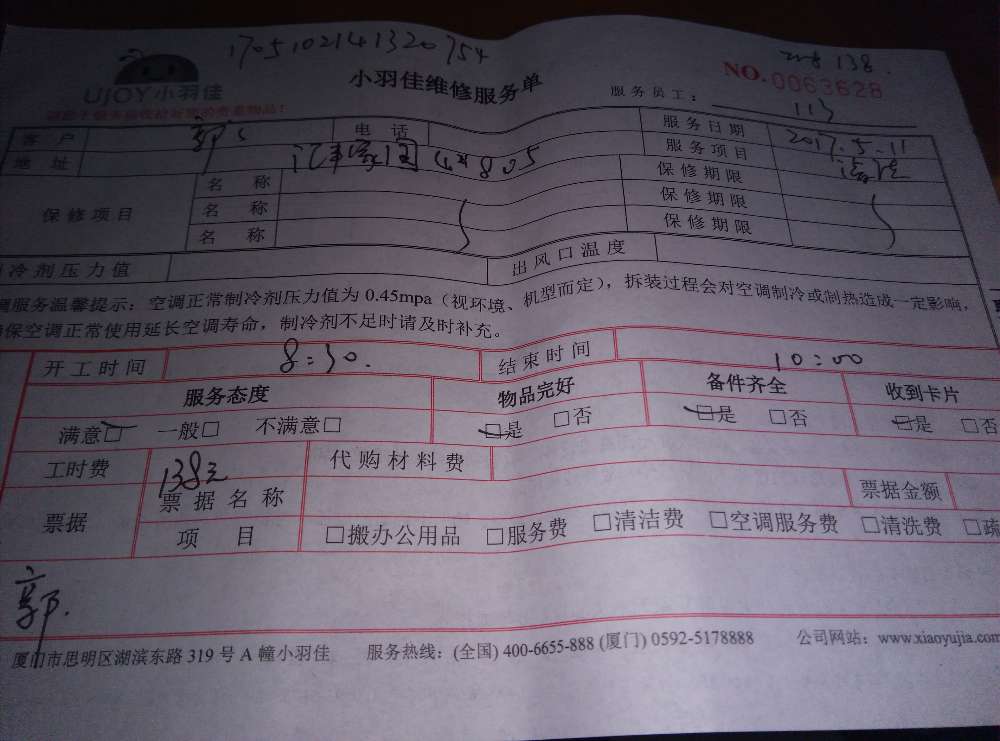 1705102141320754
138.
UJOY小羽佳
小羽佳维修服务单
NO.0063628
服务员工: 113
客户 郭 电话 服务日期 2017.5.11
地址 4#805 服务项目 清洗
保修项目 名称 保修期限
名称 保修期限
名称 保修期限
冷剂压力值 出风口温度
服务温馨提示：空调正常制冷剂压力值为0.45mpa（视环境、机型而定），拆装过程会对空调制冷或制热造成一定影响，
保空调正常使用延长空调寿命，制冷剂不足时请及时补充。
开工时间 8:30. 结束时间 10:00
服务态度 物品完好 备件齐全 收到卡片
满意□ 一般□ 不满意□ □是 □否 □是 □否 □是 □否
工时费 138元 代购材料费
票据 票据名称 票据金额
项目 □搬办公用品 □服务费 □清洁费 □空调服务费 □清洗费 □疏
郭.
厦门市思明区湖滨东路 319 号 A 幢小羽佳 服务热线：(全国) 400-6655-888 (厦门) 0592-5178888 公司网站：www.xiaoyujia.com